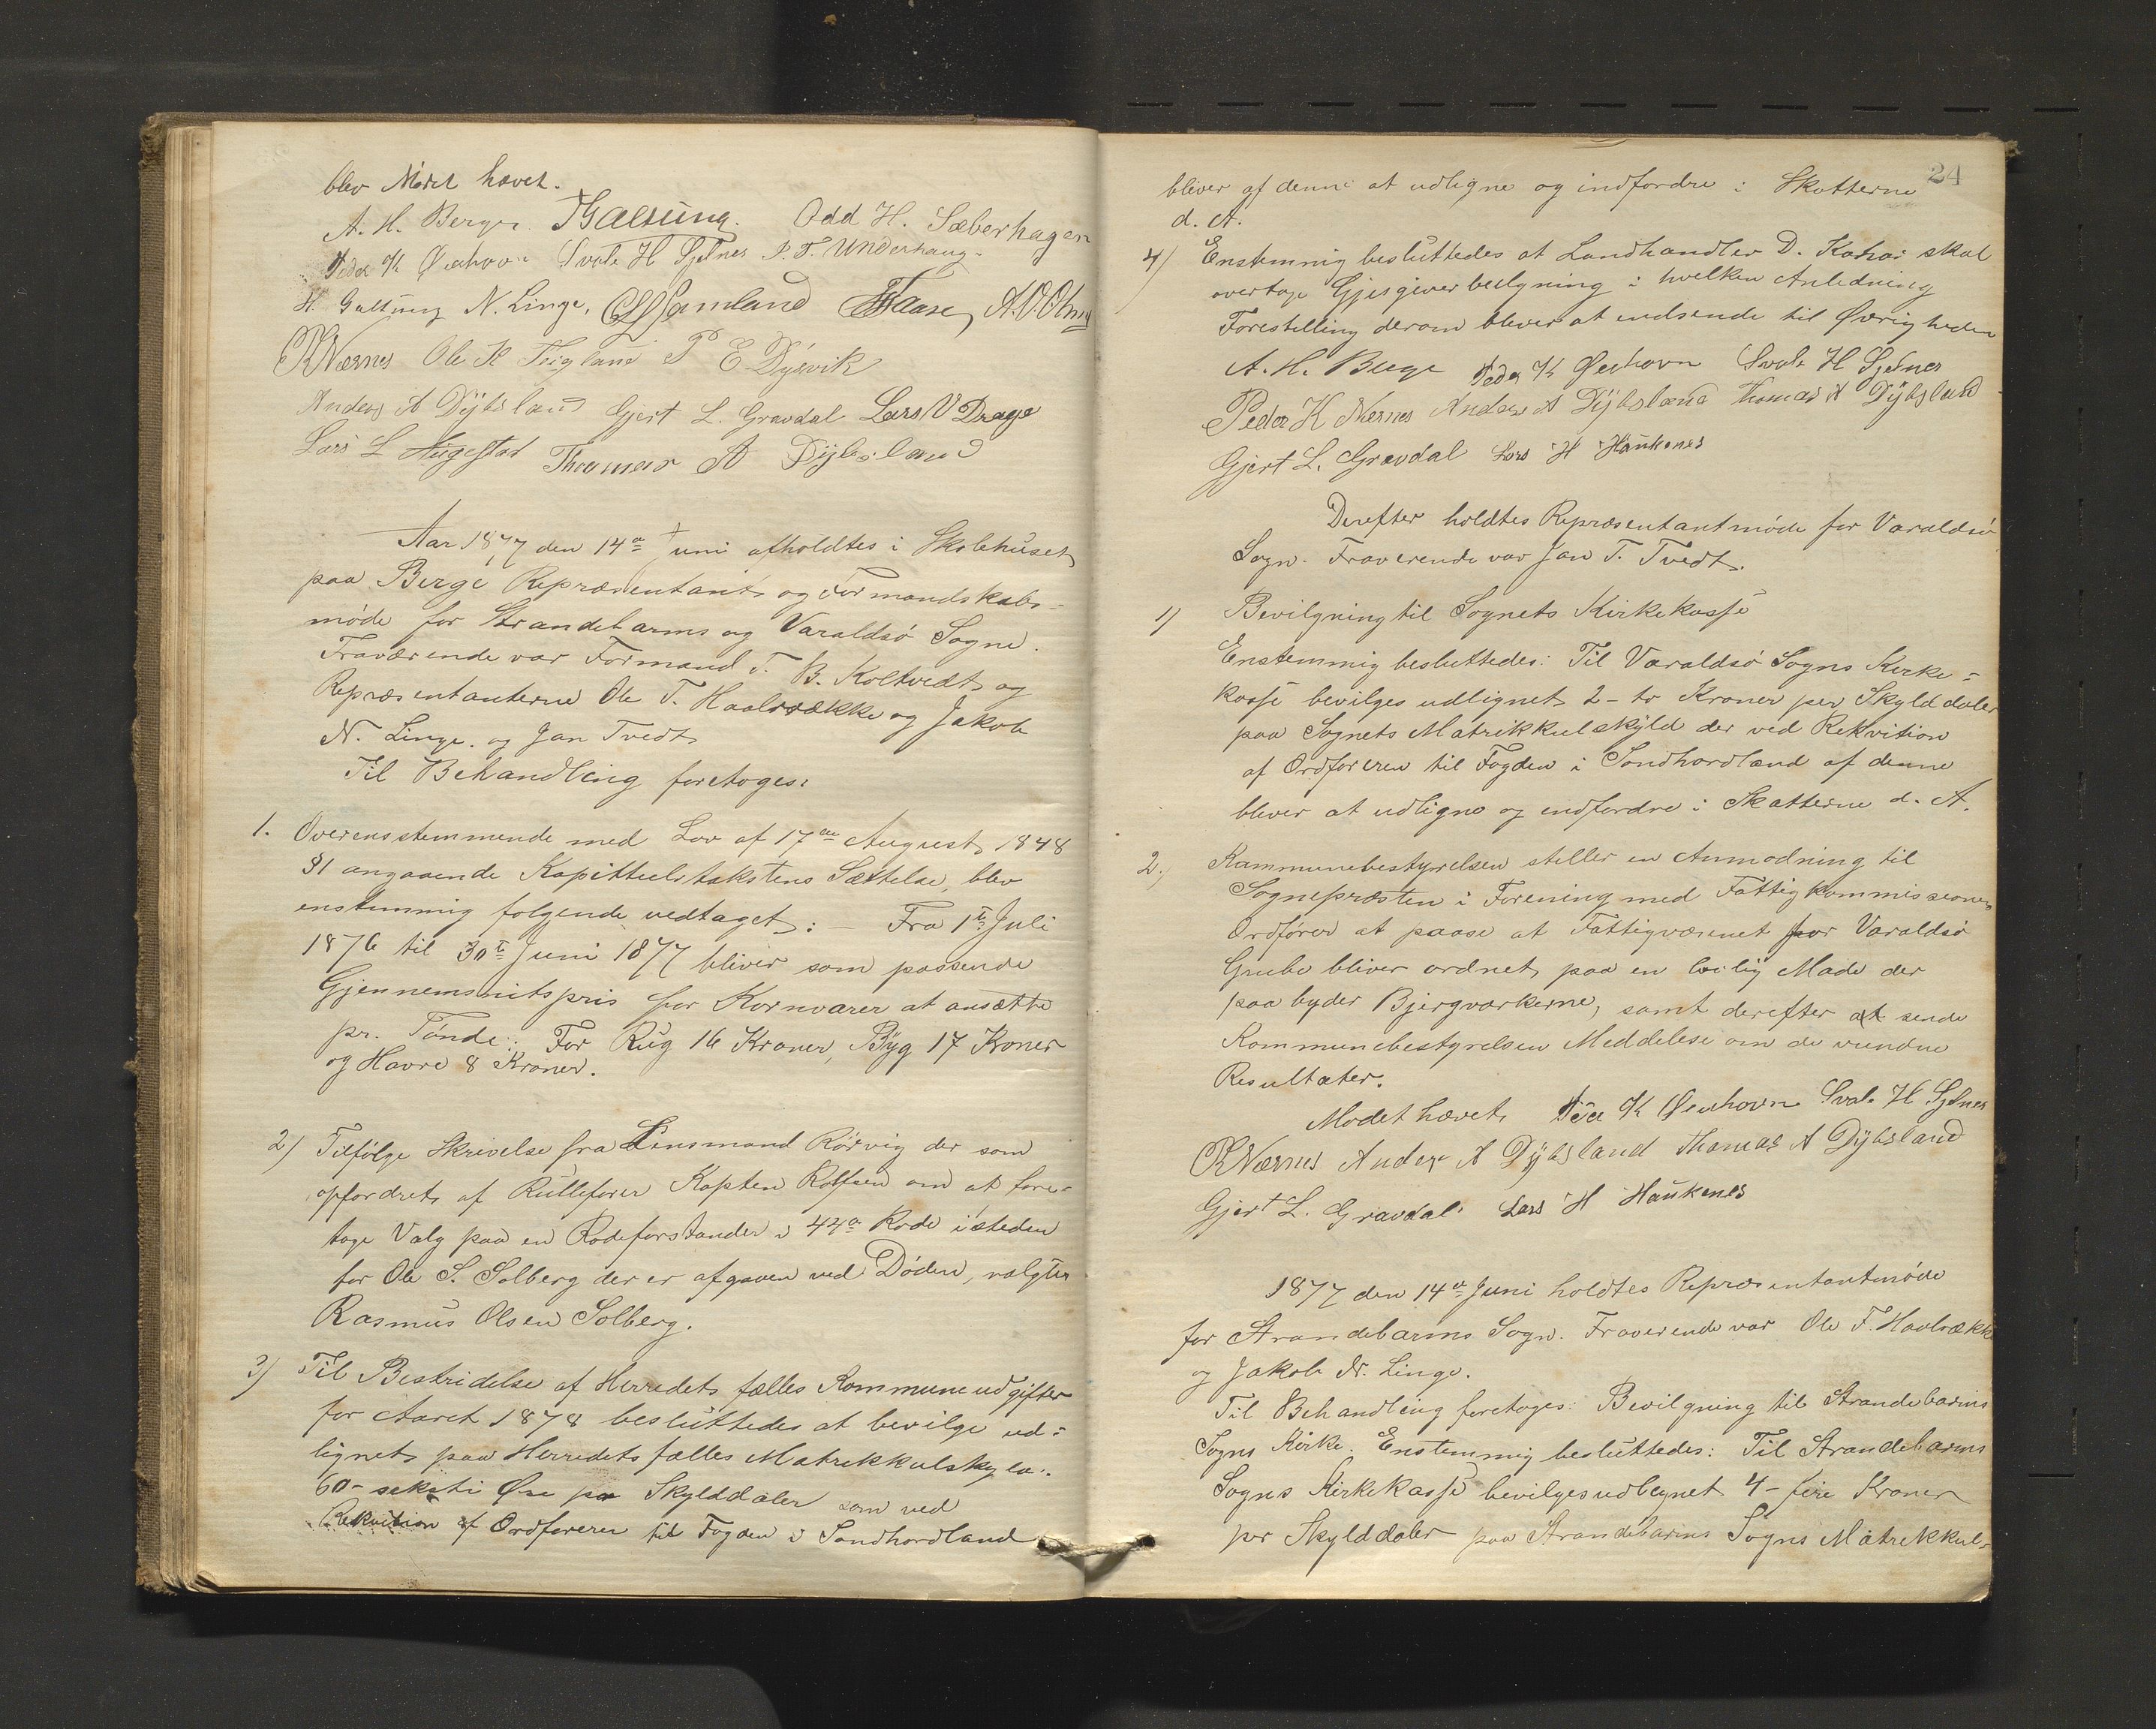 blev Mødet hævet.
A. H. Berge TGaltung. Odd H. Sæberhagen
Peder K Øvehovn Svale H Gjelnes P. T. Underhaug
H. Galtung N. Linge, Samland Faase, A. O. Olsnes
PKNærnes Ole K Teigland P E Dysvik
Anders A Dybsland Gjert L. Gravdal Lars V Drage
Lars L Augestad Thomas A Dybsland
Aar 1877 den 14de Juni afholdtes i Skolehuset
paa Berge Repræsentant- og Formandskabs-
møde for Strandebarms og Varaldsø Sogne.
Fraværende var Formand T. B. Koltvedt og
Repræsentanterne Ole T. Haalrække og Jakob
N. Linge. og Jan Tvedt
Til Behandling foretoges:
1. Overensstemmende med Lov af 17de August 1848
§1 angaaende Kapittelstakstens Sættelse, blev
enstemmig følgende vedtaget: — Fra 1te Juli
1876 til 30te Juni 1877 bliver som passende
Gjennemsnitspris for Kornvarer at ansætte
pr. Tønde: For Rug 16 Kroner, Byg 17 Kroner
og Havre 8 Kroner.
2) Tilfølge Skrivelse fra Lensmand Rørvig der som
opfordret af Rullefører Kaptein Rolfsen om at fore-
tage Valg paa en Rodeforstander i 44de Rode isteden
for Ole S. Solberg der er afgaaen ved Døden, valgtes
Rasmus Olsen Solberg.
3) Til Bestridelse af Herredets fælles Kommuneudgifter
for Aaret 1878 besluttedes at bevilge ud-
lignet paa Herredets fælles Matrikkulskyld:
60- seksti Øre pr Skylddaler som ved
Rekvisition af Ordføreren til Fogden i Sondhordland
24
bliver af denne at udligne og indfordre i Skatterne
d. A.
4) Enstemmig besluttedes at Landhandler D. Kahrs skal
overtage Gjæsgiverbevilgning i hvilken Anledning
Forestilling derom bliver at indsende til Øvrigheden
A. H. Berge Peder K Øvehovn Svale H Gjelnes
Peder K Nærnes Anders A Dybsland Thomas A Dybsland
Gjert L. Gravdal Lars H Haukenes
Derefter holdtes Repræsentantmøde for Varaldsø
Sogn. Fraværende var Jan T. Tvedt.
1) Bevilgning til Sognets Kirkekasse
Enstemmig besluttedes: Til Varaldsø Sogns Kirke-
kasse bevilges udlignet 2- to Kroner per Skylddaler
paa Sognets Matrikkulskyld der ved Rekvition
af Ordføreren til Fogden i Sondhordland af denne
bliver at udligne og indfordre i Skatterne d. A.
2) Kommunebestyrelsen stiller en Anmodning til
Sognepræsten i Forening med Fattigkommissionens
Ordfører at paase at Fattigvæsenet for Varaldsø
Grube bliver ordnet paa en lovlig Maade der
paabyder Bjergværkerne, samt derefter at sende
Kommunebestyrelsen Meddelese om de vundne
Resultater.
Mødet hævet. Peder K Øvehovn Svale H Gjelnes
PKNærnes Anders A Dybsland Thomas A Dybsland
Gjert L. Gravdal Lars H Haukenes
1877 den 14de Juni holdtes Repræsentantmøde
for Strandebarms Sogn. Fraværende var Ole T. Haalrække
og Jakob N. Linge.
Til Behandling foretoges: Bevilgning til Strandebarms
Sogns Kirke. Enstemmig besluttedes: Til Strandebarms
Sogns Kirkekasse bevilges udlignet 4- fire Kroner
per Skylddaler paa Strandebarms Sogns Matrikkul-